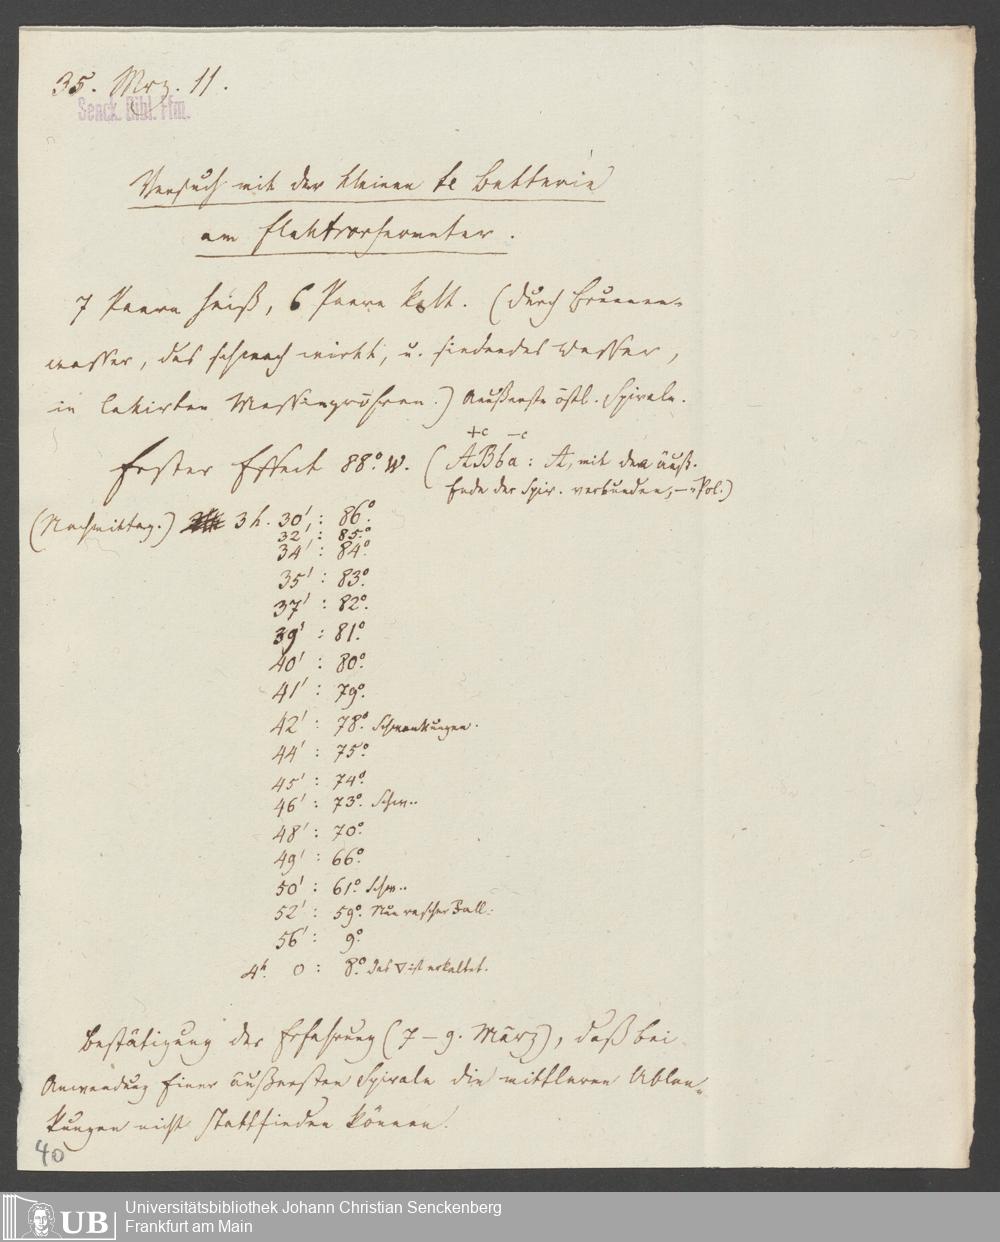 35. Mrz. 11.
Senck. Bibl. Ffm.
Versuch mit der kleinen te Batterie
am Elektrothermometer.
7 Paare heiß, 6 Paare kalt. (durch Brunnen-
wasser, das schwach wirkt, u. siedendes Wasser,
in lakirten Messingröhren.) Aeußerste östl. Spirale.
+c —c
Erster Effect 88°. W. (ABba: A, mit dem äuß.
Ende der Spir. verbunden, — Pol.)
(Nachmittag.) 3 h. 30': 86°.
32': 85°.
34': 84°.
35': 83°.
37': 82°.
39': 81°.
40': 80°.
41': 79°.
42': 78°. Schwankungen.
44': 75°.
45': 74°.
46': 73°. Schw..
48': 70°.
49': 66°.
50': 61°. Schw..
52': 59°. Nun rascher Fall.
56': 9°.
4h. 0: 8°. Das ▽ ist erkaltet.
Bestätigung der Erfahrung (7 – 9. März), daß bei
Anwendung Einer äußersten Spirale die mittleren Ablen-
kungen nicht stattfinden können.
40
UB
Universitätsbibliothek Johann Christian Senckenberg
Frankfurt am Main